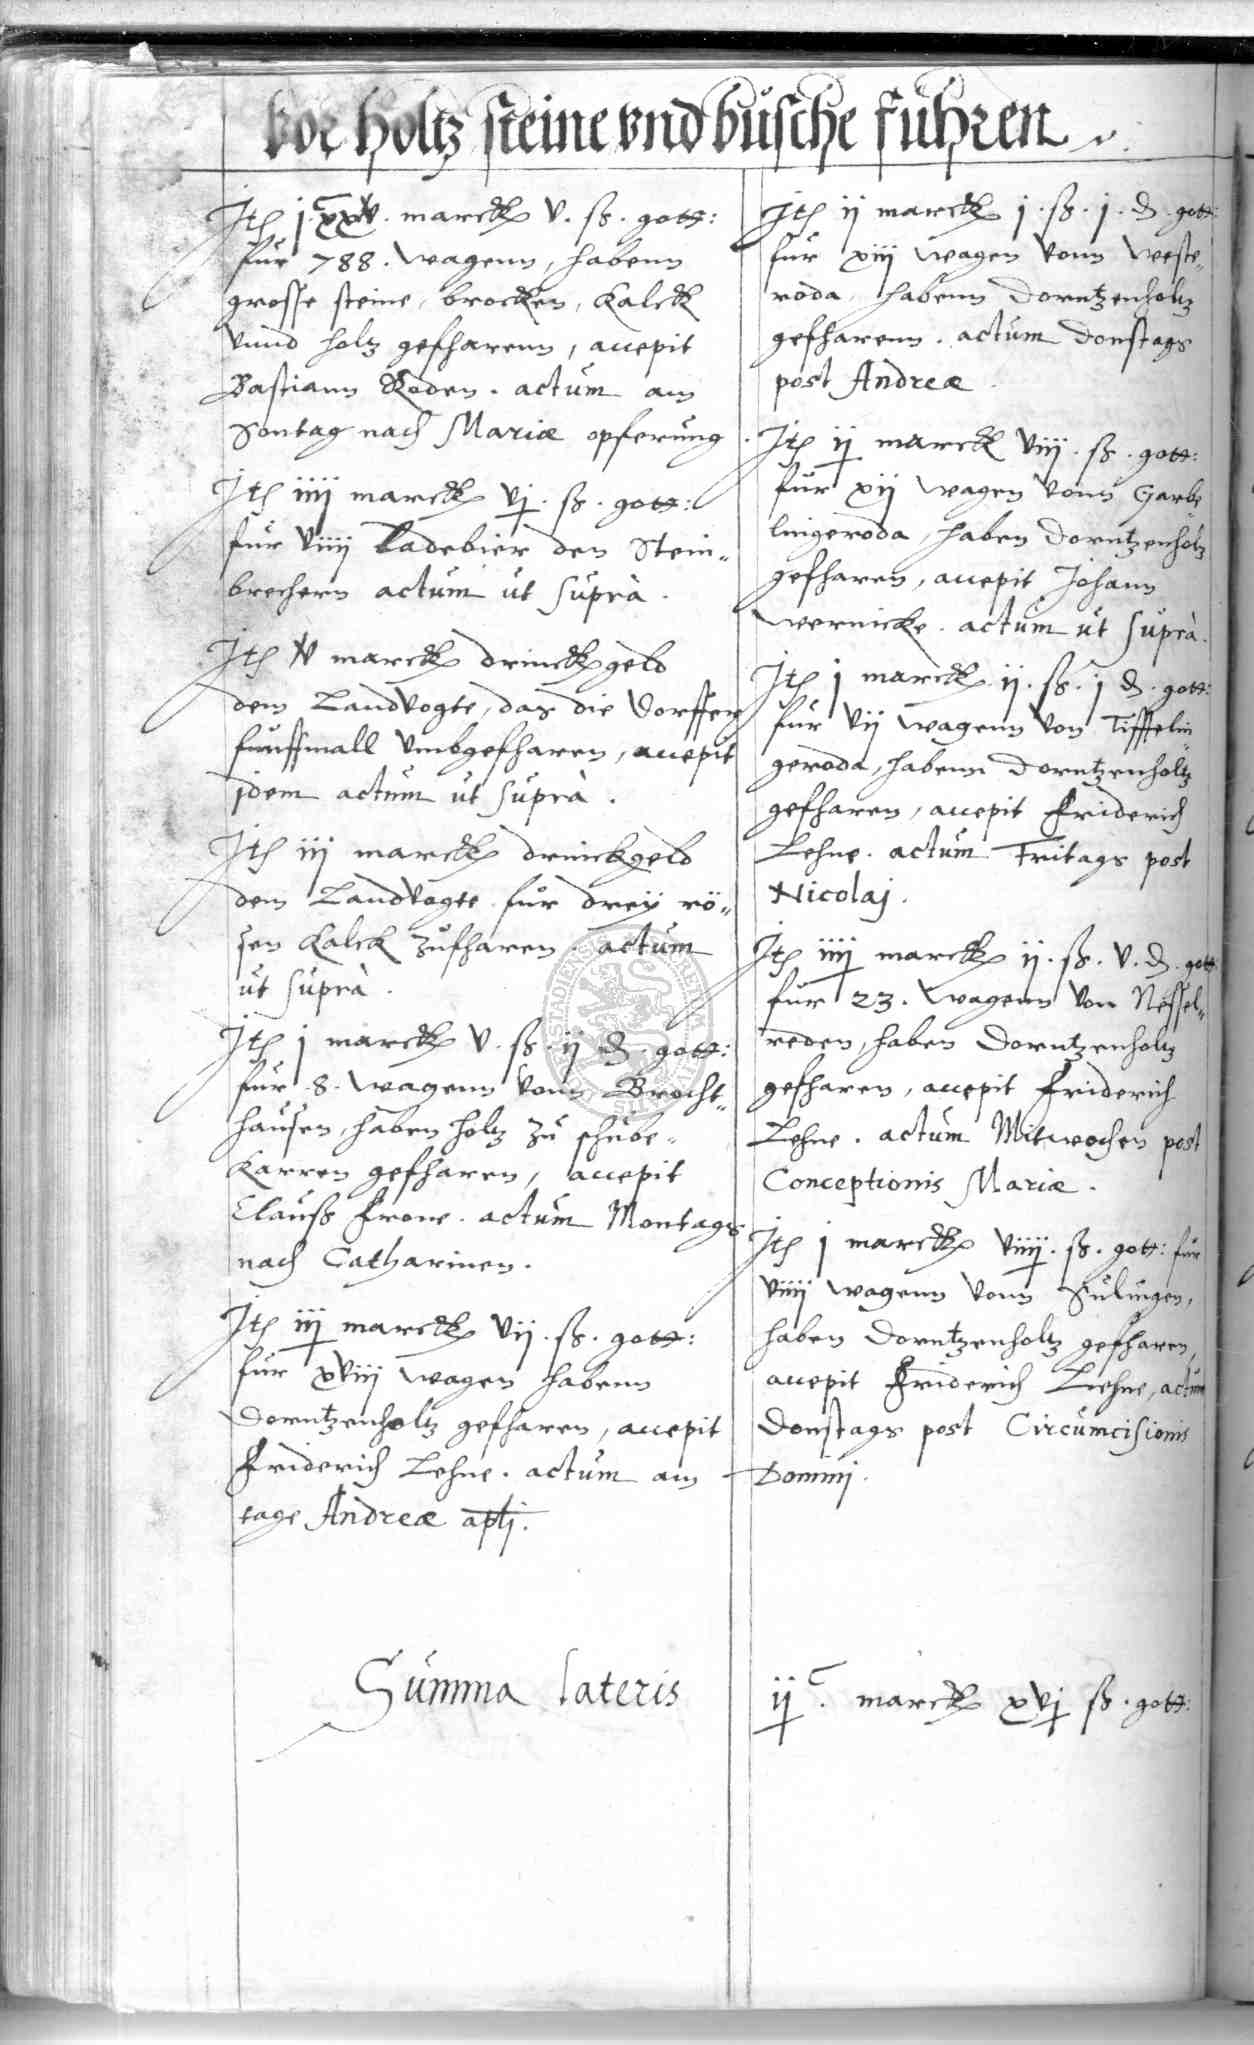 Vor Holtz steine vnd büsche führen
Jtē j.C xxxv. marck v. ß. gott:
für 788. wagenn, habenn
grosse steine, brocken, Kalck
vnnd holtz gefharenn, accepit
Bastiann Roden. actum am
Sontag nach Mariæ opferung
Jtē iiij marck vj. ß. gott:
für viiij Ladebier den Stein-
brechern actum ut suprà.
Jtē v marck drinckgeld
dem Landvogte, das die Dorffer
fünffmall vmbgefharen, accepit
idem actum ut suprà.
Jtē iij marck drinckgeld
dem Landvogte für dreÿ rö-
sen Kalck zufharen. actum
ut suprà.
Jtē j marck v. ß. ij ₰. gott:
für .8. wagenn vonn Brocht-
hausen, haben holtz zu schube-
Karren gefharen, accepit
Clauß Frone. actum Montags
nach Catharinen.
Jtē iij marck vij. ß. gott:
für xviij wagen habenn
Dorntzenholtz gefharen, accepit
Friderich Lehne. actum am
tage Andreæ apłi.
Jtē ij marck j. ß. j. ₰. gott:
für xiij wagen vonn Weste-
roda, habenn Dorntzenholtz
gefharenn. actum Donstags
post Andreæ.
Jtē ij marck viij. ß. gott:
für xij wagen vonn Garbe
lingeroda, haben Dorntzenholtz
gefharen, accepit Johann
Wernicke. actum ut suprà.
Jtē j marck ij. ß. j ₰. gott:
für vij wagenn von Tifftelin
geroda, habenn Dorntzenholtz
gefharen, accepit Friderich
Lehne. actum Fritags post
Nicolaj.
Jtē iiij marck ij. ß. v. ₰. gott:
für 23. wagenn von Nessel-
reden, haben Dorntzenholtz
gefharen, accepit Friderich
Lehne. actum Mitwochen post
Conceptionis Mariæ.
Jtē j marck viiij. ß. gott: für
viiij wagenn vonn Sulingen,
haben Dorntzenholtz gefharen,
accepit Friderich Lehne, actum
Donstags post Circumcisionis
Dominj.
Summa lateris
ij C. marck xvj ß. gott: